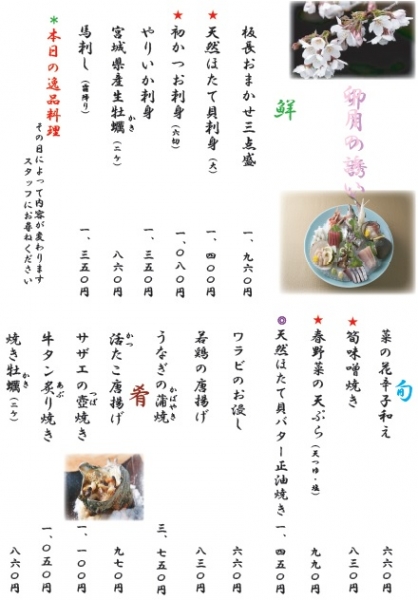 卯月の誘い
鮮
板長おまかせ三点盛 一、九六〇円
★天然ほたて貝刺身(大) 一、四〇〇円
★初かつお刺身(六切) 一、〇八〇円
やりいか刺身 一、三五〇円
宮城県産生牡蠣(二ケ) 八六〇円
かき
馬刺し(霜降り) 一、三五〇円
*本日の逸品料理
その日によって内容が変わります
スタッフにお尋ねください
旬
菜の花辛子和え 六六〇円
★筍味噌焼き 八三〇円
★春野菜の天ぷら(天つゆ・塩) 九九〇円
◎天然ほたて貝バター正油焼き 一、四五〇円
ワラビのお浸し 六六〇円
若鶏の唐揚げ 八三〇円
うなぎの蒲焼 三、七五〇円
かばやき
肴
活たこ唐揚げ 九七〇円
かつ
サザエの壺焼き 一、一〇〇円
つぼ
牛タン炙り焼き 一、〇五〇円
あぶ
焼き牡蠣(二ケ) 八六〇円
かき